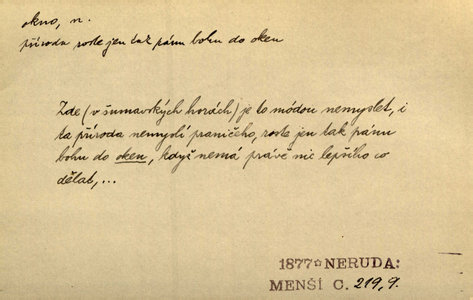 okno, n.
příroda roste jen tak pánu bohu do oken
Zde (v šumavských horách) je to módou nemyslet, i
ta příroda nemyslí praničeho, roste jen tak pánu
bohu do oken, když nemá právě nic lepšího co
dělat,...
1877 NERUDA:
MENŠÍ C. 219,9.